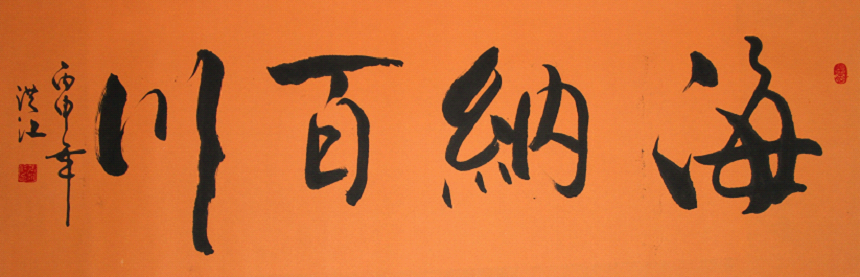 海納百川
丙申年
洪江